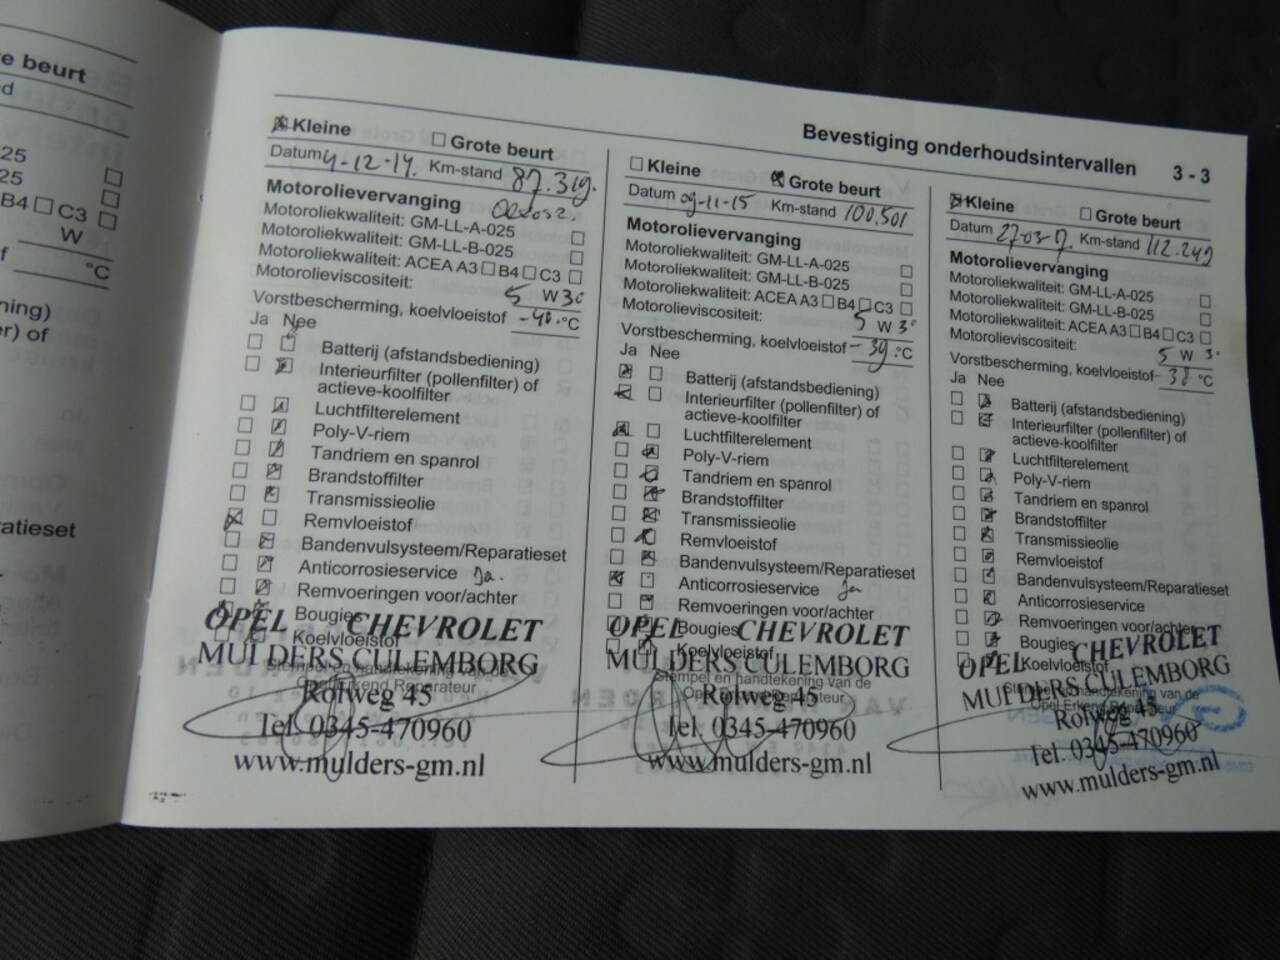 e beurt
d
25
25
B4 ☐ C3 ☐
W
f °C
ing)
r) of
ratieset
Bevestiging onderhoudsintervallen 3 - 3
☒ Kleine ☐ Grote beurt
Datum 4-12-14. Km-stand 87.319.
Motorolievervanging
Motoroliekwaliteit: GM-LL-A-025 ☐
Motoroliekwaliteit: GM-LL-B-025 ☐
Motoroliekwaliteit: ACEA A3 ☐ B4 ☐ C3 ☐
Motorolieviscositeit: 5 W 30
Vorstbescherming, koelvloeistof -40.°C
Ja Nee
Batterij (afstandsbediening)
Interieurfilter (pollenfilter) of
actieve-koolfilter
Luchtfilterelement
Poly-V-riem
Tandriem en spanrol
Brandstoffilter
Transmissieolie
Remvloeistof
Bandenvulsysteem/Reparatieset
Anticorrosieservice Ja.
Remvoeringen voor/achter
Bougies
Koelvloeistof
Stempel en handtekening van de
Opel Erkend Reparateur
OPEL CHEVROLET
MULDERS CULEMBORG
Rolweg 45
Tel. 0345-470960
www.mulders-gm.nl
☐ Kleine ☒ Grote beurt
Datum 09-11-15 Km-stand 100.501
Motorolievervanging
Motoroliekwaliteit: GM-LL-A-025 ☐
Motoroliekwaliteit: GM-LL-B-025 ☐
Motoroliekwaliteit: ACEA A3 ☐ B4 ☐ C3 ☐
Motorolieviscositeit: 5 W 30
Vorstbescherming, koelvloeistof -39.°C
Ja Nee
Batterij (afstandsbediening)
Interieurfilter (pollenfilter) of
actieve-koolfilter
Luchtfilterelement
Poly-V-riem
Tandriem en spanrol
Brandstoffilter
Transmissieolie
Remvloeistof
Bandenvulsysteem/Reparatieset
Anticorrosieservice Ja
Remvoeringen voor/achter
Bougies
Koelvloeistof
Stempel en handtekening van de
Opel Erkend Reparateur
OPEL CHEVROLET
MULDERS CULEMBORG
Rolweg 45
Tel. 0345-470960
www.mulders-gm.nl
☒ Kleine ☐ Grote beurt
Datum 27-03-17. Km-stand 112.249
Motorolievervanging
Motoroliekwaliteit: GM-LL-A-025 ☐
Motoroliekwaliteit: GM-LL-B-025 ☐
Motoroliekwaliteit: ACEA A3 ☐ B4 ☐ C3 ☐
Motorolieviscositeit: 5 W 30
Vorstbescherming, koelvloeistof -38 °C
Ja Nee
Batterij (afstandsbediening)
Interieurfilter (pollenfilter) of
actieve-koolfilter
Luchtfilterelement
Poly-V-riem
Tandriem en spanrol
Brandstoffilter
Transmissieolie
Remvloeistof
Bandenvulsysteem/Reparatieset
Anticorrosieservice
Remvoeringen voor/achter
Bougies
Koelvloeistof
Stempel en handtekening van de
Opel Erkend Reparateur
OPEL CHEVROLET
MULDERS CULEMBORG
Rolweg 45
Tel. 0345-470960
www.mulders-gm.nl